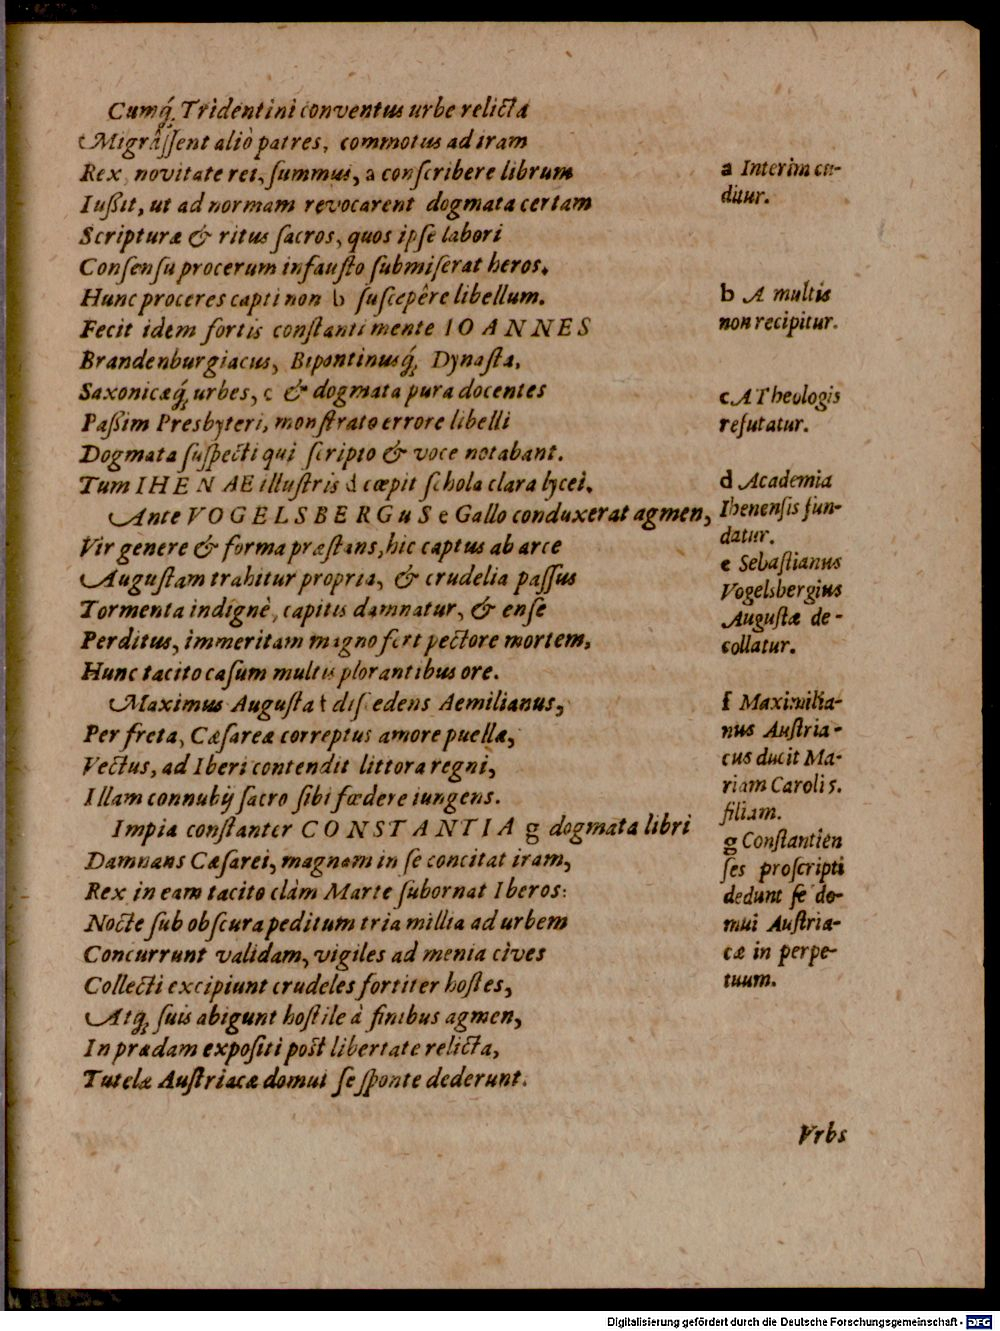 Cumq́; Tridentini conventus urbe relicta
Migrâſſent aliò patres, commotus ad iram
Rex novitate rei, ſummus, a conſcribere librum
Iuſsit, ut ad normam revocarent dogmata certam
Scripturæ & ritus ſacros, quos ipſe labori
Conſenſu procerum infauſto ſubmiſerat heros.
Hunc proceres capti non b ſuſcepêre libellum.
Fecit idem fortis conſtanti mente IOANNES
Brandenburgiacus, Bipontinusq́; Dynaſta,
Saxonicæq́; urbes, c & dogmata pura docentes
Paſsim Presbyteri, monſtrato errore libelli
Dogmata ſuſpecti qui ſcripto & voce notabant.
Tum IHENAE illuſtris d cœpit ſchola clara lycei.
Ante VOGELSBERGuS e Gallo conduxerat agmen,
Vir genere & forma præſtans, hic captus ab arce
Auguſtam trahitur propria, & crudelia paſſus
Tormenta indignè, capitis damnatur, & enſe
Perditus, immeritam magno fert pectore mortem,
Hunc tacito caſum multis plorantibus ore.
Maximus Auguſta f diſcedens Aemilianus,
Per freta, Cæſareæ correptus amore puellæ,
Vectus, ad Iberi contendit littora regni,
Illam connubij ſacro ſibi fœdere iungens.
Impia conſtanter CONSTANTIA g dogmata libri
Damnans Cæſarei, magnam in ſe concitat iram,
Rex in eam tacito clàm Marte ſubornat Iberos:
Nocte ſub obſcura peditum tria millia ad urbem
Concurrunt validam, vigiles ad menia cives
Collecti excipiunt crudeles fortiter hoſtes,
Atq́; ſuis abigunt hoſtile à finibus agmen,
In prædam expoſiti poſt libertate relicta,
Tutelæ Auſtriacæ domui ſe ſponte dederunt.
a Interim cu-
ditur.
b A multis
non recipitur.
c A Theologis
refutatur.
d Academia
Ihenenſis fun-
datur.
e Sebaſtianus
Vogelsbergius
Auguſtæ de-
collatur.
f Maximilia-
nus Auſtria-
cus ducit Ma-
riam Caroli 5.
filiam.
g Conſtantien
ſes proſcripti
dedunt ſe do-
mui Auſtria-
cæ in perpe-
tuum.
Vrbs
Digitalisierung gefördert durch die Deutsche Forschungsgemeinschaft - DFG